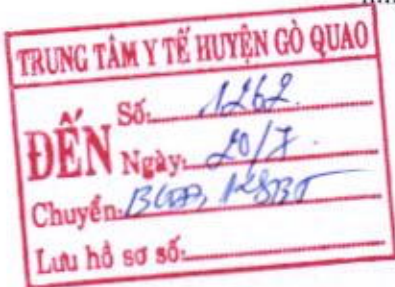 TRUNG TÂM Y TẾ HUYỆN GÒ QUAO
ĐẾN
Số: 1262
Ngày: 20/7
Chuyển: KSBT
Lưu hồ sơ số: